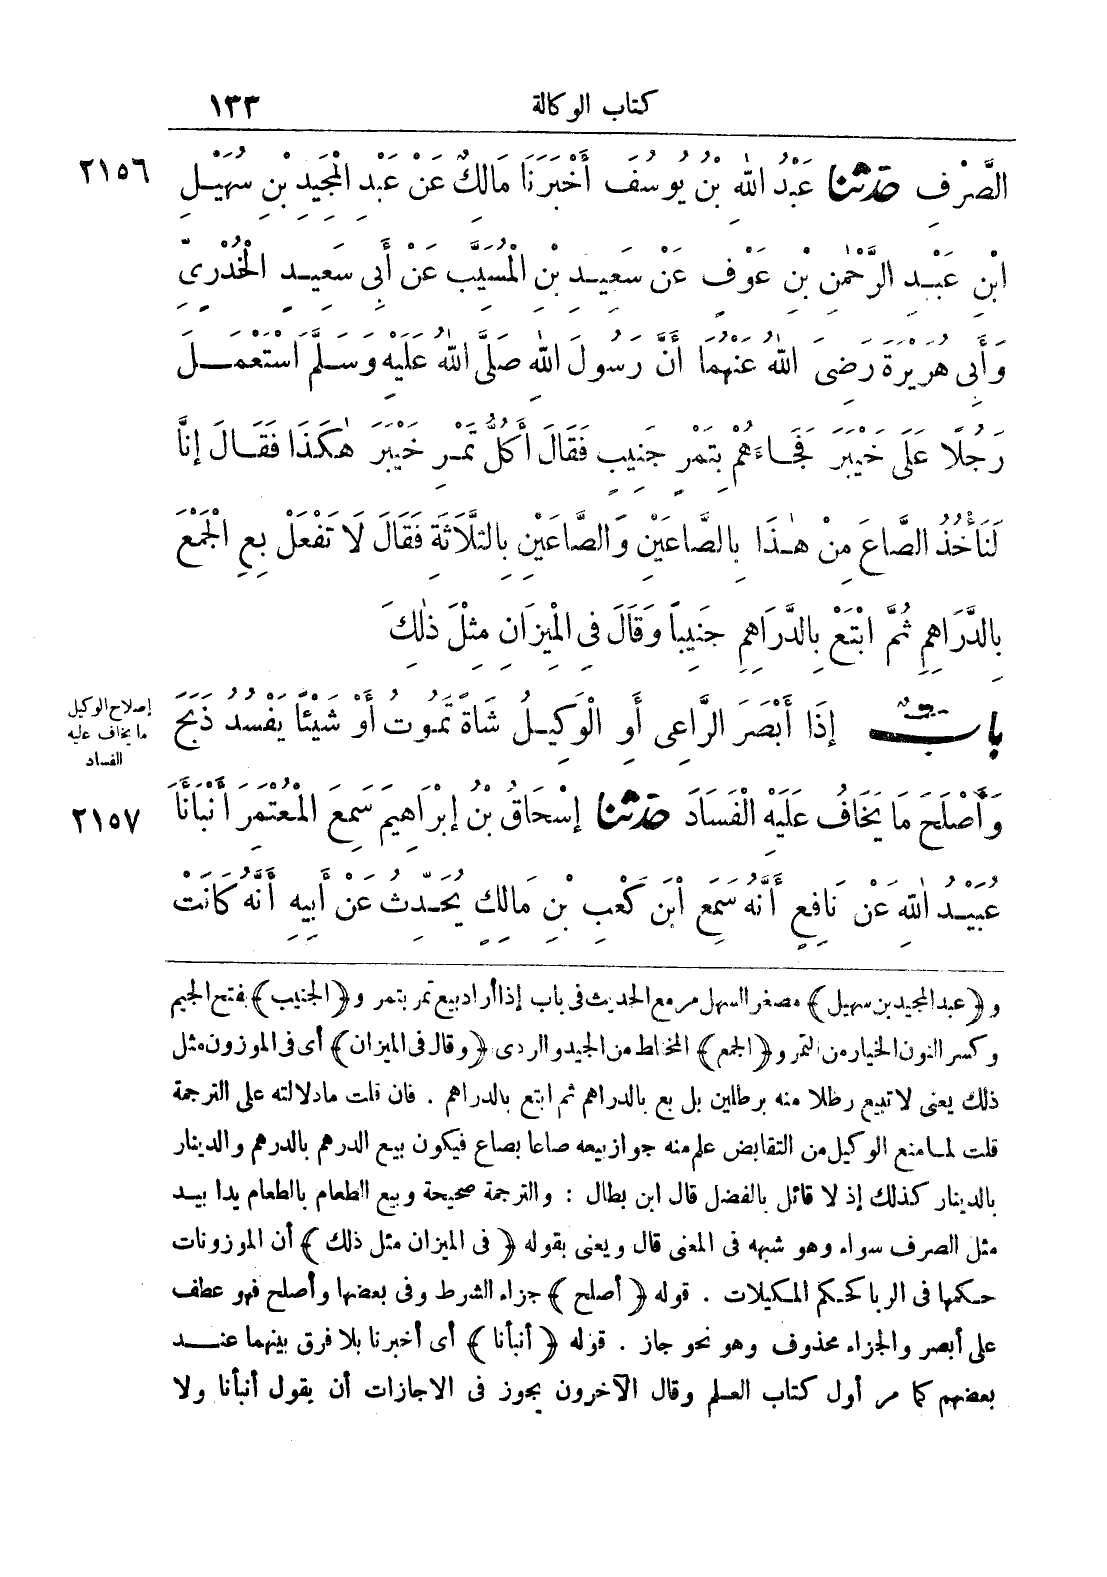 كتاب الوكالة ١٣٣
الصَّرْفِ حَدَّثَنَا عَبْدُ اللهِ بْنُ يُوسُفَ أَخْبَرَنَا مَالِكٌ عَنْ عَبْدِ الْمَجِيدِ بْنِ سُهَيْلِ ٢١٥٦
ابْنِ عَبْدِ الرَّحْمٰنِ بْنِ عَوْفٍ عَنْ سَعِيدِ بْنِ الْمُسَيَّبِ عَنْ أَبِى سَعِيدٍ الْخُدْرِيِّ
وَأَبِى هُرَيْرَةَ رَضِىَ اللهُ عَنْهُمَا أَنَّ رَسُولَ اللهِ صَلَّى اللهُ عَلَيْهِ وَسَلَّمَ اسْتَعْمَلَ
رَجُلًا عَلَى خَيْبَرَ فَجَاءَهُمْ بِتَمْرٍ جَنِيبٍ فَقَالَ أَكُلُّ تَمْرِ خَيْبَرَ هٰكَذَا فَقَالَ إِنَّا
لَنَأْخُذُ الصَّاعَ مِنْ هٰذَا بِالصَّاعَيْنِ وَالصَّاعَيْنِ بِالثَّلَاثَةِ فَقَالَ لَا تَفْعَلْ بِعِ الْجَمْعَ
بِالدَّرَاهِمِ ثُمَّ ابْتَعْ بِالدَّرَاهِمِ جَنِيبًا وَقَالَ فِى الْمِيزَانِ مِثْلَ ذٰلِكَ
بابٌ إِذَا أَبْصَرَ الرَّاعِى أَوِ الْوَكِيلُ شَاةً تَمُوتُ أَوْ شَيْئًا يَفْسُدُ ذَبَحَ
إصلاح الوكيل
ما يخاف عليه
الفساد
وَأَصْلَحَ مَا يَخَافُ عَلَيْهِ الْفَسَادَ حَدَّثَنَا إِسْحَاقُ بْنُ إِبْرَاهِيمَ سَمِعَ الْمُعْتَمِرَ أَنْبَأَنَا ٢١٥٧
عُبَيْدُ اللهِ عَنْ نَافِعٍ أَنَّهُ سَمِعَ ابْنَ كَعْبِ بْنِ مَالِكٍ يُحَدِّثُ عَنْ أَبِيهِ أَنَّهُ كَانَتْ
و﴿عبدالمجيد بن سهيل﴾ مصغر السهل مر مع الحديث فى باب إذا أراد بيع تمر بتمر و﴿الجنيب﴾ بفتح الجيم
وكسر النون الخيار من التمر و﴿الجمع﴾ المختلط من الجيد والردى ﴿وقال فى الميزان﴾ أى فى الموزون مثل
ذلك يعنى لا تبيع رطلا منه برطلين بل بع بالدراهم ثم ابتع بالدراهم . فان قلت ما دلالته على الترجمة
قلت لما منع الوكيل من التقابض علم منه جواز بيعه صاعا بصاع فيكون بيع الدرهم بالدرهم والدينار
بالدينار كذلك إذ لا قائل بالفضل قال ابن بطال : والترجمة صحيحة وبيع الطعام بالطعام يدا بيد
مثل الصرف سواء وهو شبهه فى المعنى قال ويعنى بقوله ﴿فى الميزان مثل ذلك﴾ أن الموزونات
حكمها فى الربا كحكم المكيلات . قوله ﴿أصلح﴾ جزاء الشرط وفى بعضها وأصلح فهو عطف
على أبصر والجزاء محذوف وهو نحو جاز . قوله ﴿أنبأنا﴾ أى أخبرنا بلا فرق بينهما عند
بعضهم كما مر أول كتاب العلم وقال الآخرون يجوز فى الاجازات أن يقول أنبأنا ولا